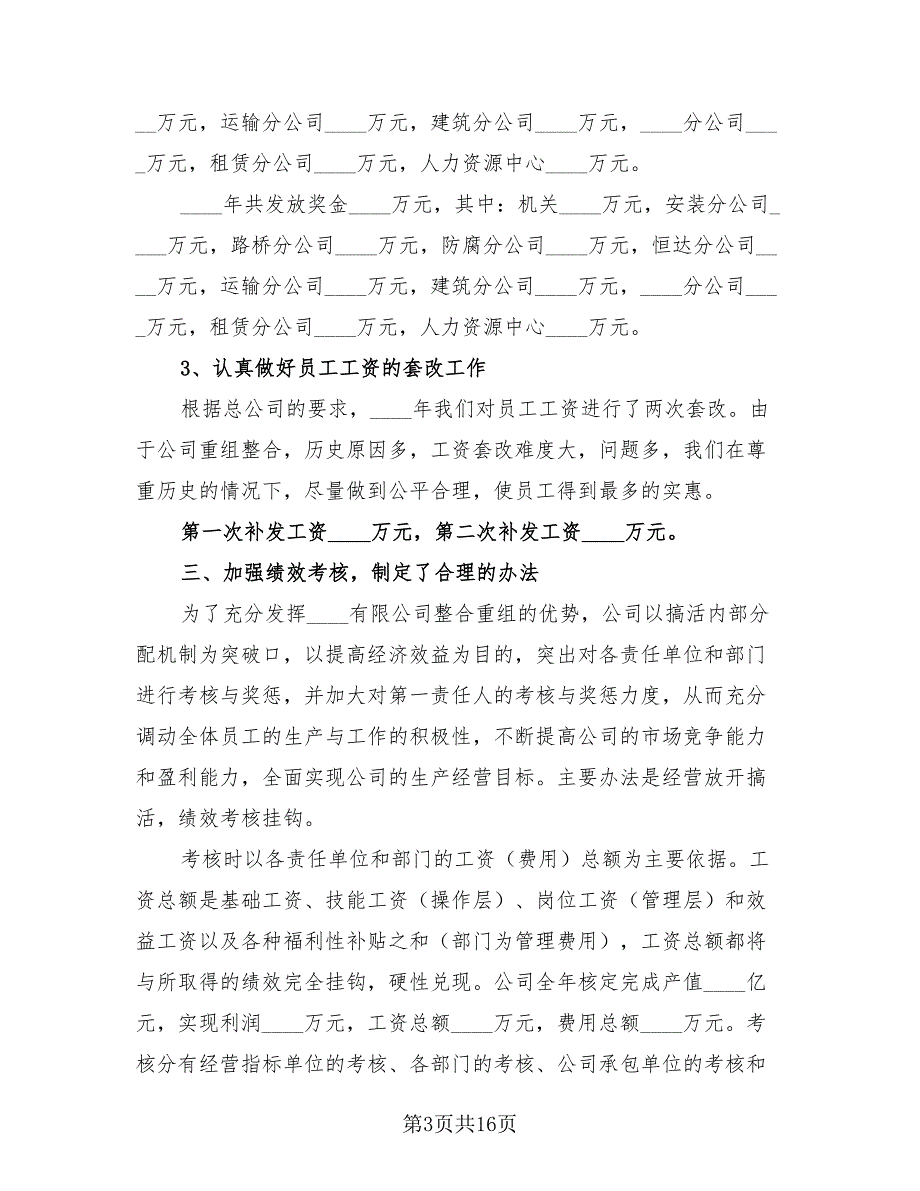 __万元，运输分公司____万元，建筑分公司____万元，____分公司___
_万元，租赁分公司____万元，人力资源中心____万元。
____年共发放奖金____万元，其中：机关____万元，安装分公司_
___万元，路桥分公司____万元，防腐分公司____万元，恒达分公司__
__万元，运输分公司____万元，建筑分公司____万元，____分公司___
_万元，租赁分公司____万元，人力资源中心____万元。
3、认真做好员工工资的套改工作
根据总公司的要求，____年我们对员工工资进行了两次套改。由
于公司重组整合，历史原因多，工资套改难度大，问题多，我们在尊
重历史的情况下，尽量做到公平合理，使员工得到最多的实惠。
第一次补发工资____万元，第二次补发工资____万元。
三、加强绩效考核，制定了合理的办法
为了充分发挥____有限公司整合重组的优势，公司以搞活内部分
配机制为突破口，以提高经济效益为目的，突出对各责任单位和部门
进行考核与奖惩，并加大对第一责任人的考核与奖惩力度，从而充分
调动全体员工的生产与工作的积极性，不断提高公司的市场竞争能力
和盈利能力，全面实现公司的生产经营目标。主要办法是经营放开搞
活，绩效考核挂钩。
考核时以各责任单位和部门的工资（费用）总额为主要依据。工
资总额是基础工资、技能工资（操作层）、岗位工资（管理层）和效
益工资以及各种福利性补贴之和（部门为管理费用），工资总额都将
与所取得的绩效完全挂钩，硬性兑现。公司全年核定完成产值____亿
元，实现利润____万元，工资总额____万元，费用总额____万元。考
核分有经营指标单位的考核、各部门的考核、公司承包单位的考核和
第3页共16页